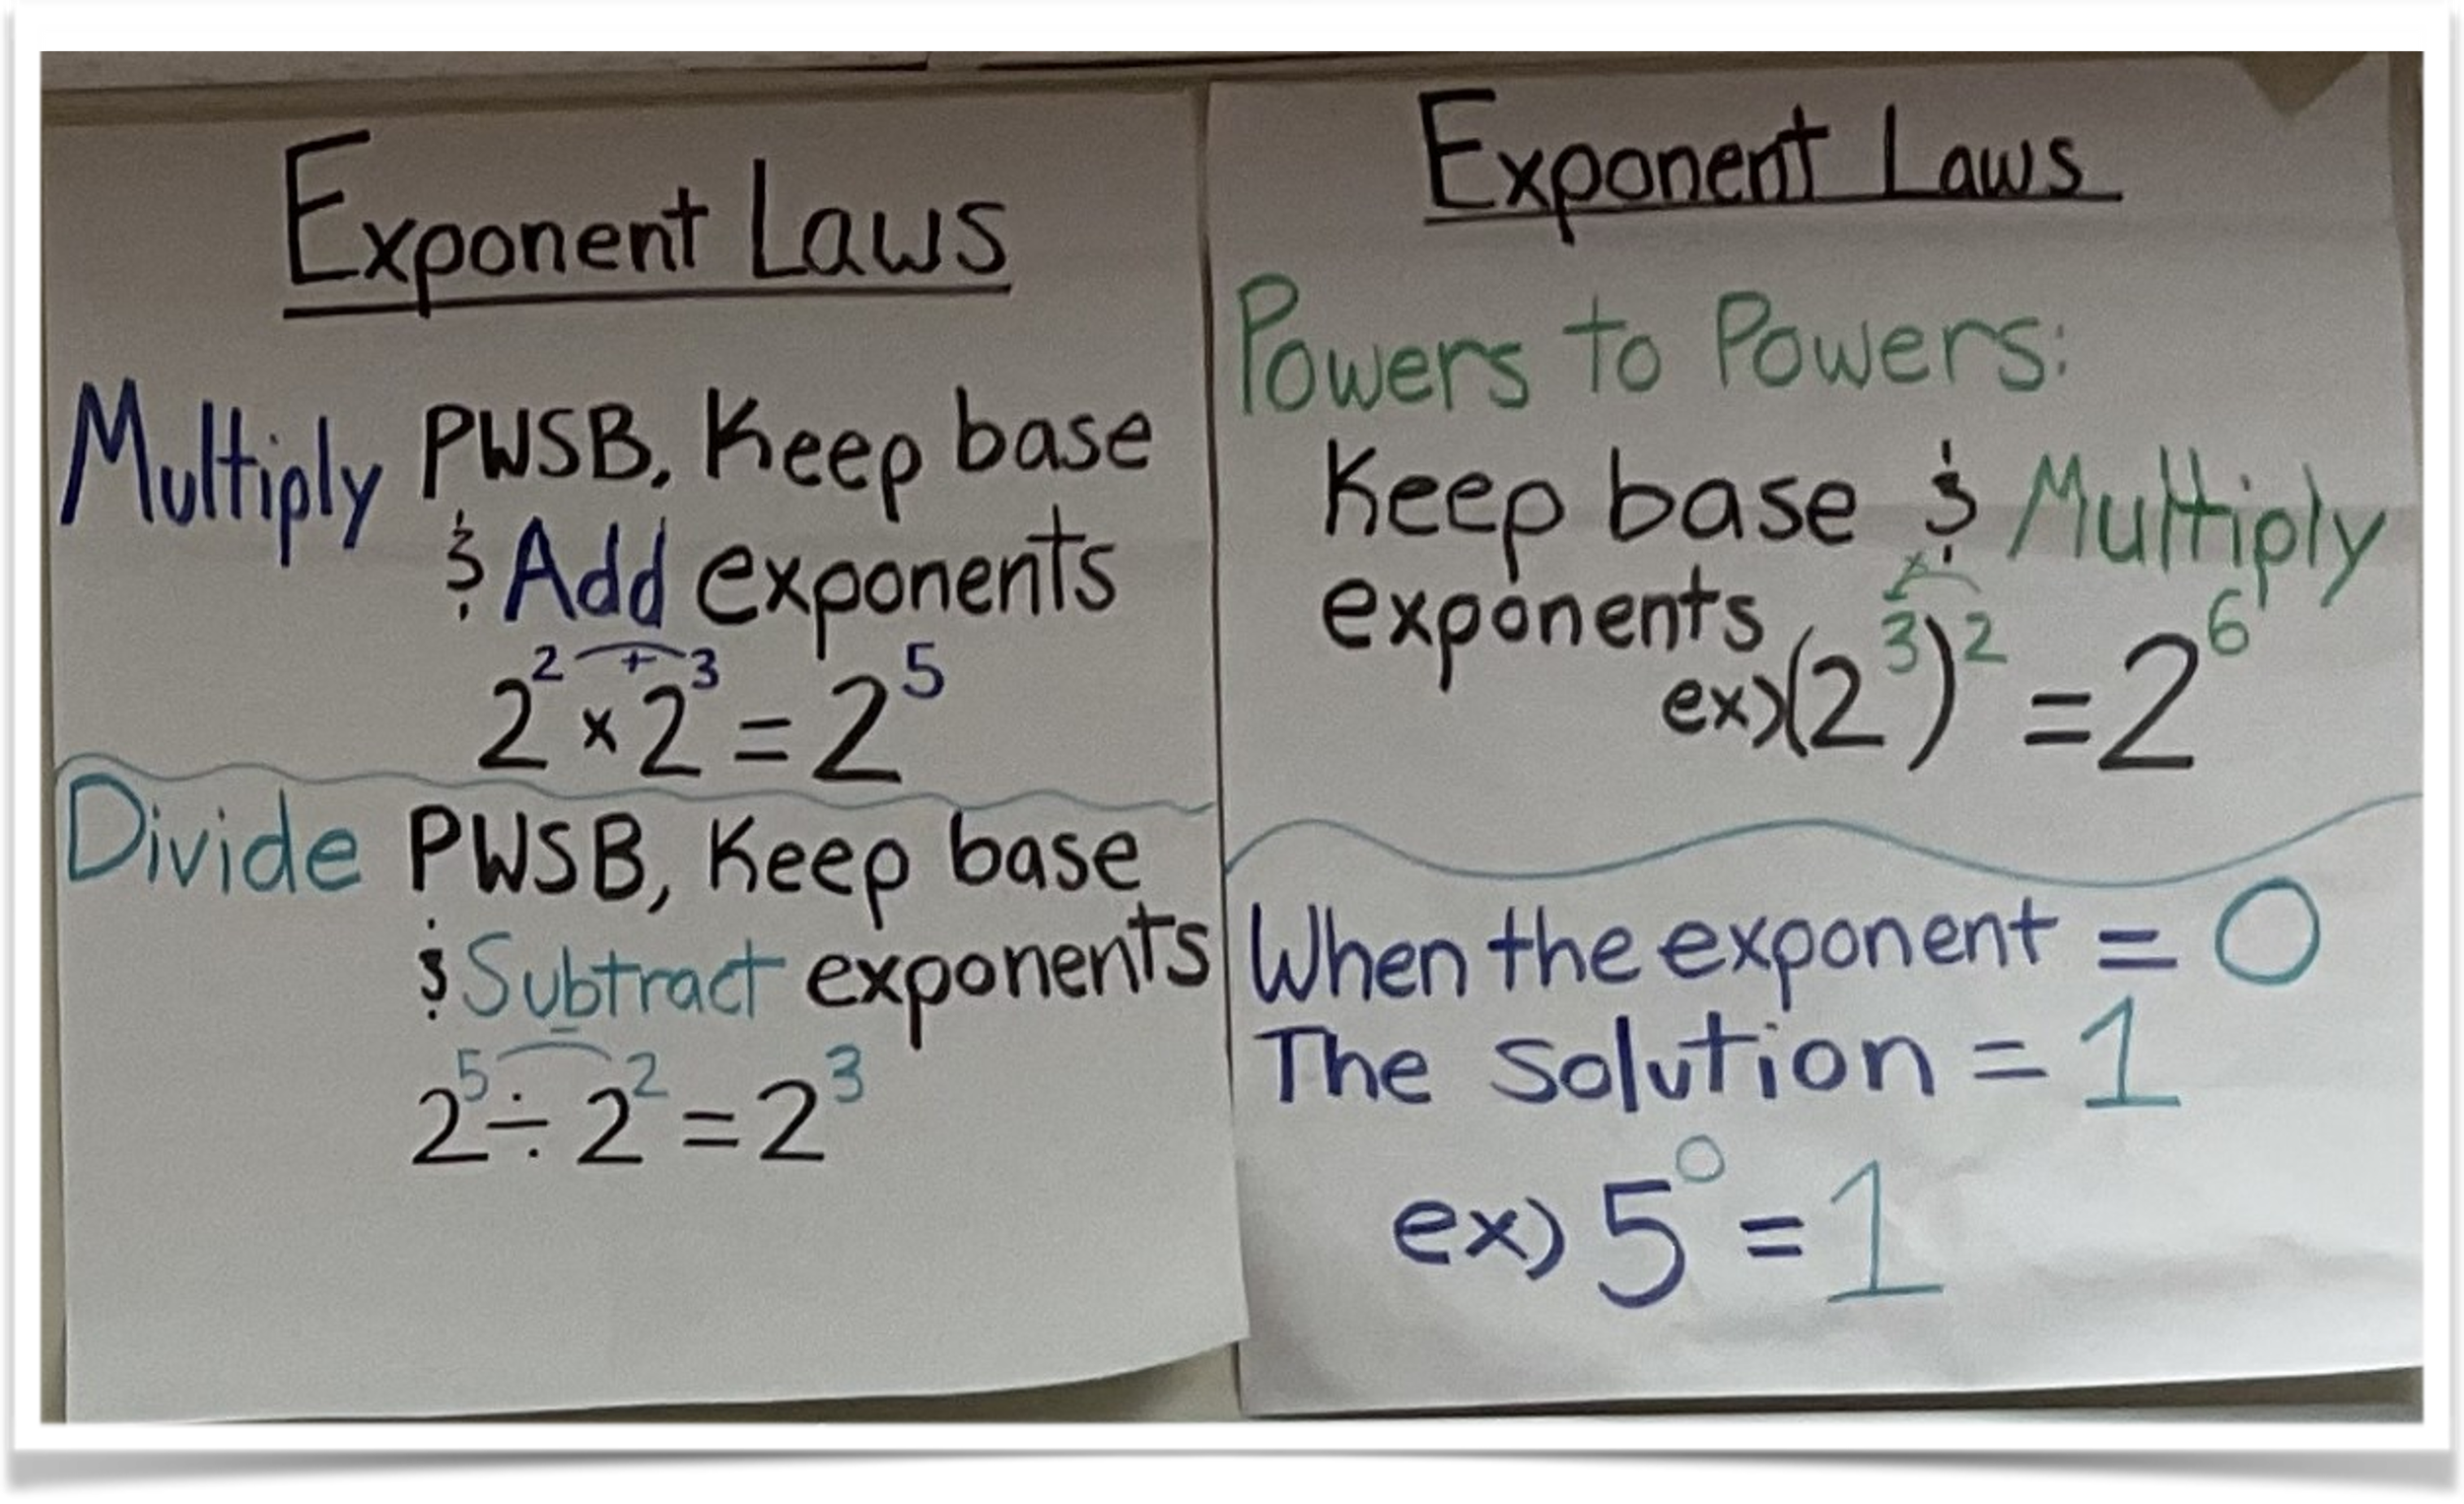 Exponent Laws
Multiply PWSB, Keep base
& Add exponents
2² × 2³ = 2⁵
+
Divide PWSB, Keep base
& Subtract exponents
−
2⁵ ÷ 2² = 2³
Exponent Laws
Powers to Powers:
Keep base & Multiply
exponents
×
ex) (2³)² = 2⁶
When the exponent = 0
The solution = 1
ex) 5⁰ = 1